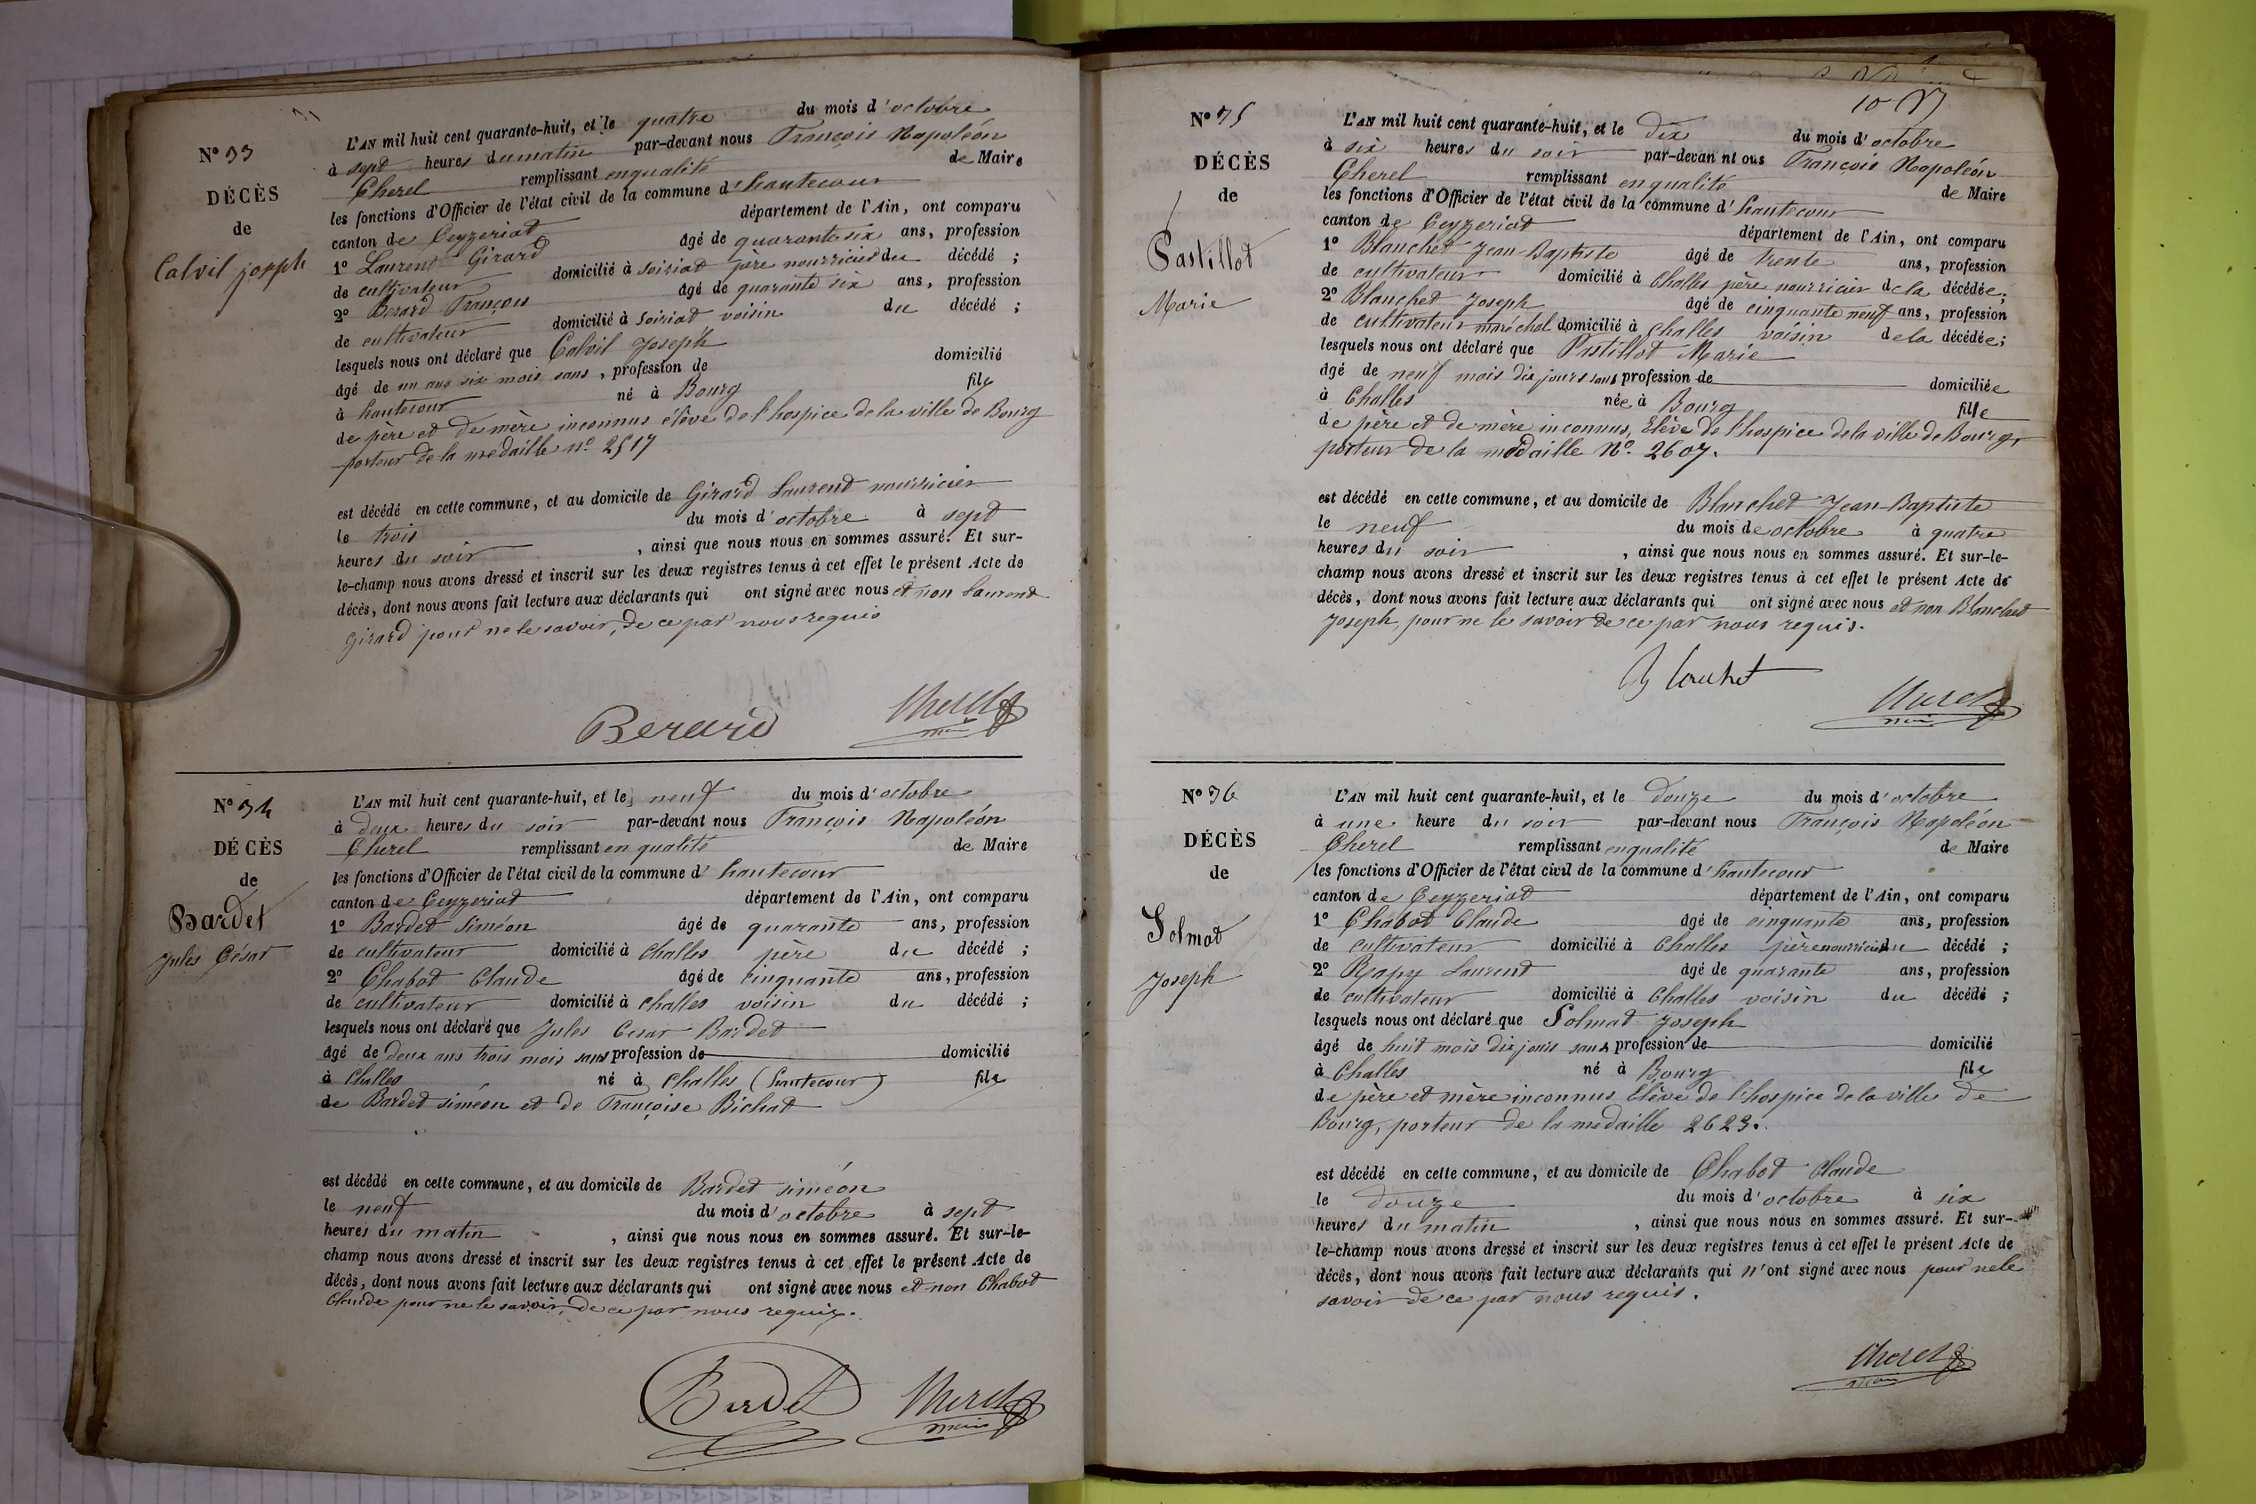 N° 33
DÉCÈS
de
Calvil joseph
L'AN mil huit cent quarante-huit, et le quatre du mois d'octobre
à sept heures du matin par-devant nous François Napoléon
Cherel remplissant en qualité de Maire
les fonctions d'Officier de l'état civil de la commune d'hautecour
canton de Ceyzeriat département de l'Ain, ont comparu
1° Laurent Girard âgé de quarante six ans, profession
de cultivateur domicilié à Soiriat père nourricier du décédé ;
2° Berard François âgé de quarante six ans, profession
de cultivateur domicilié à Soiriat voisin du décédé ;
lesquels nous ont déclaré que Calvil Joseph
âgé de un ans six mois sans, profession de domicilié
à hautecour né à Bourg fils
de père et de mère inconnus élève de l'hospice de la ville de Bourg
porteur de la medaille n° 2517
est décédé en cette commune, et au domicile de Girard Laurent nourricier
le trois du mois d'octobre à sept
heures du soir, ainsi que nous nous en sommes assuré. Et sur-
le-champ nous avons dressé et inscrit sur les deux registres tenus à cet effet le présent Acte de
décès, dont nous avons fait lecture aux déclarants qui ont signé avec nous et non Laurent
Girard pour ne le savoir, de ce par nous requis
Berard Cherel
N° 34
DÉCÈS
de
Bardet
Jules César
L'AN mil huit cent quarante-huit, et le neuf du mois d'octobre
à deux heures du soir par-devant nous François Napoléon
Cherel remplissant en qualité de Maire
les fonctions d'Officier de l'état civil de la commune d'hautecour
canton de Ceyzeriat département de l'Ain, ont comparu
1° Bardet Siméon âgé de quarante ans, profession
de cultivateur domicilié à Challes père du décédé ;
2° Chabot Claude âgé de cinquante ans, profession
de cultivateur domicilié à Challes voisin du décédé ;
lesquels nous ont déclaré que Jules Cesar Bardet
âgé de deux ans trois mois sans profession de domicilié
à Challes né à Challes (hautecour) fils
de Bardet siméon et de Françoise Bichat
est décédé en cette commune, et au domicile de Bardet siméon
le neuf du mois d'octobre à sept
heures du matin, ainsi que nous nous en sommes assuré. Et sur-le-
champ nous avons dressé et inscrit sur les deux registres tenus à cet effet le présent Acte de
décès, dont nous avons fait lecture aux déclarants qui ont signé avec nous et non Chabot
Claude pour ne le savoir, de ce par nous requis.
Bardet Cherel
maire
N° 35
DÉCÈS
de
Pastillot
Marie
L'AN mil huit cent quarante-huit, et le dix du mois d'octobre
à six heures du soir par-devan nt ous François Napoléon
Cherel remplissant en qualité de Maire
les fonctions d'Officier de l'état civil de la commune d'hautecour
canton de Ceyzeriat département de l'Ain, ont comparu
1° Blanchet Jean-Baptiste âgé de trente ans, profession
de cultivateur domicilié à Challes père nourricier de la décédée ;
2° Blanchet Joseph âgé de cinquante neuf ans, profession
de cultivateur maréchal domicilié à Challes voisin de la décédée ;
lesquels nous ont déclaré que Pistillot Marie
âgé de neuf mois dix jours sans profession de domiciliée
à Challes née à Bourg fille
de père et de mère inconnus, Elève de l'hospice de la ville de Bourg,
porteur de la médaille N°. 2607.
est décédé en cette commune, et au domicile de Blanchet Jean-Baptiste
le neuf du mois de octobre à quatre
heures du soir, ainsi que nous nous en sommes assuré. Et sur-le-
champ nous avons dressé et inscrit sur les deux registres tenus à cet effet le présent Acte de
décès, dont nous avons fait lecture aux déclarants qui ont signé avec nous et non Blanchet
Joseph, pour ne le savoir de ce par nous requis.
Blanchet Cherel
N° 36
DÉCÈS
de
Solmat
Joseph
L'AN mil huit cent quarante-huit, et le douze du mois d'octobre
à une heure du soir par-devant nous François Napoléon
Cherel remplissant en qualité de Maire
les fonctions d'Officier de l'état civil de la commune d'hautecour
canton de Ceyzeriat département de l'Ain, ont comparu
1° Chabot Claude âgé de cinquante ans, profession
de cultivateur domicilié à Challes père nourricier du décédé ;
2° Rapy Laurent âgé de quarante ans, profession
de cultivateur domicilié à Challes voisin du décédé ;
lesquels nous ont déclaré que Solmat Joseph
âgé de huit mois dix jours sans profession de domicilié
à Challes né à Bourg fils
de père et mère inconnus Elève de l'hospice de la ville de
Bourg, porteur de la medaille 2623.
est décédé en cette commune, et au domicile de Chabot Claude
le douze du mois d'octobre à six
heures du matin, ainsi que nous nous en sommes assuré. Et sur-
le-champ nous avons dressé et inscrit sur les deux registres tenus à cet effet le présent Acte de
décès, dont nous avons fait lecture aux déclarants qui n'ont signé avec nous pour ne le
savoir de ce par nous requis.
Cherel